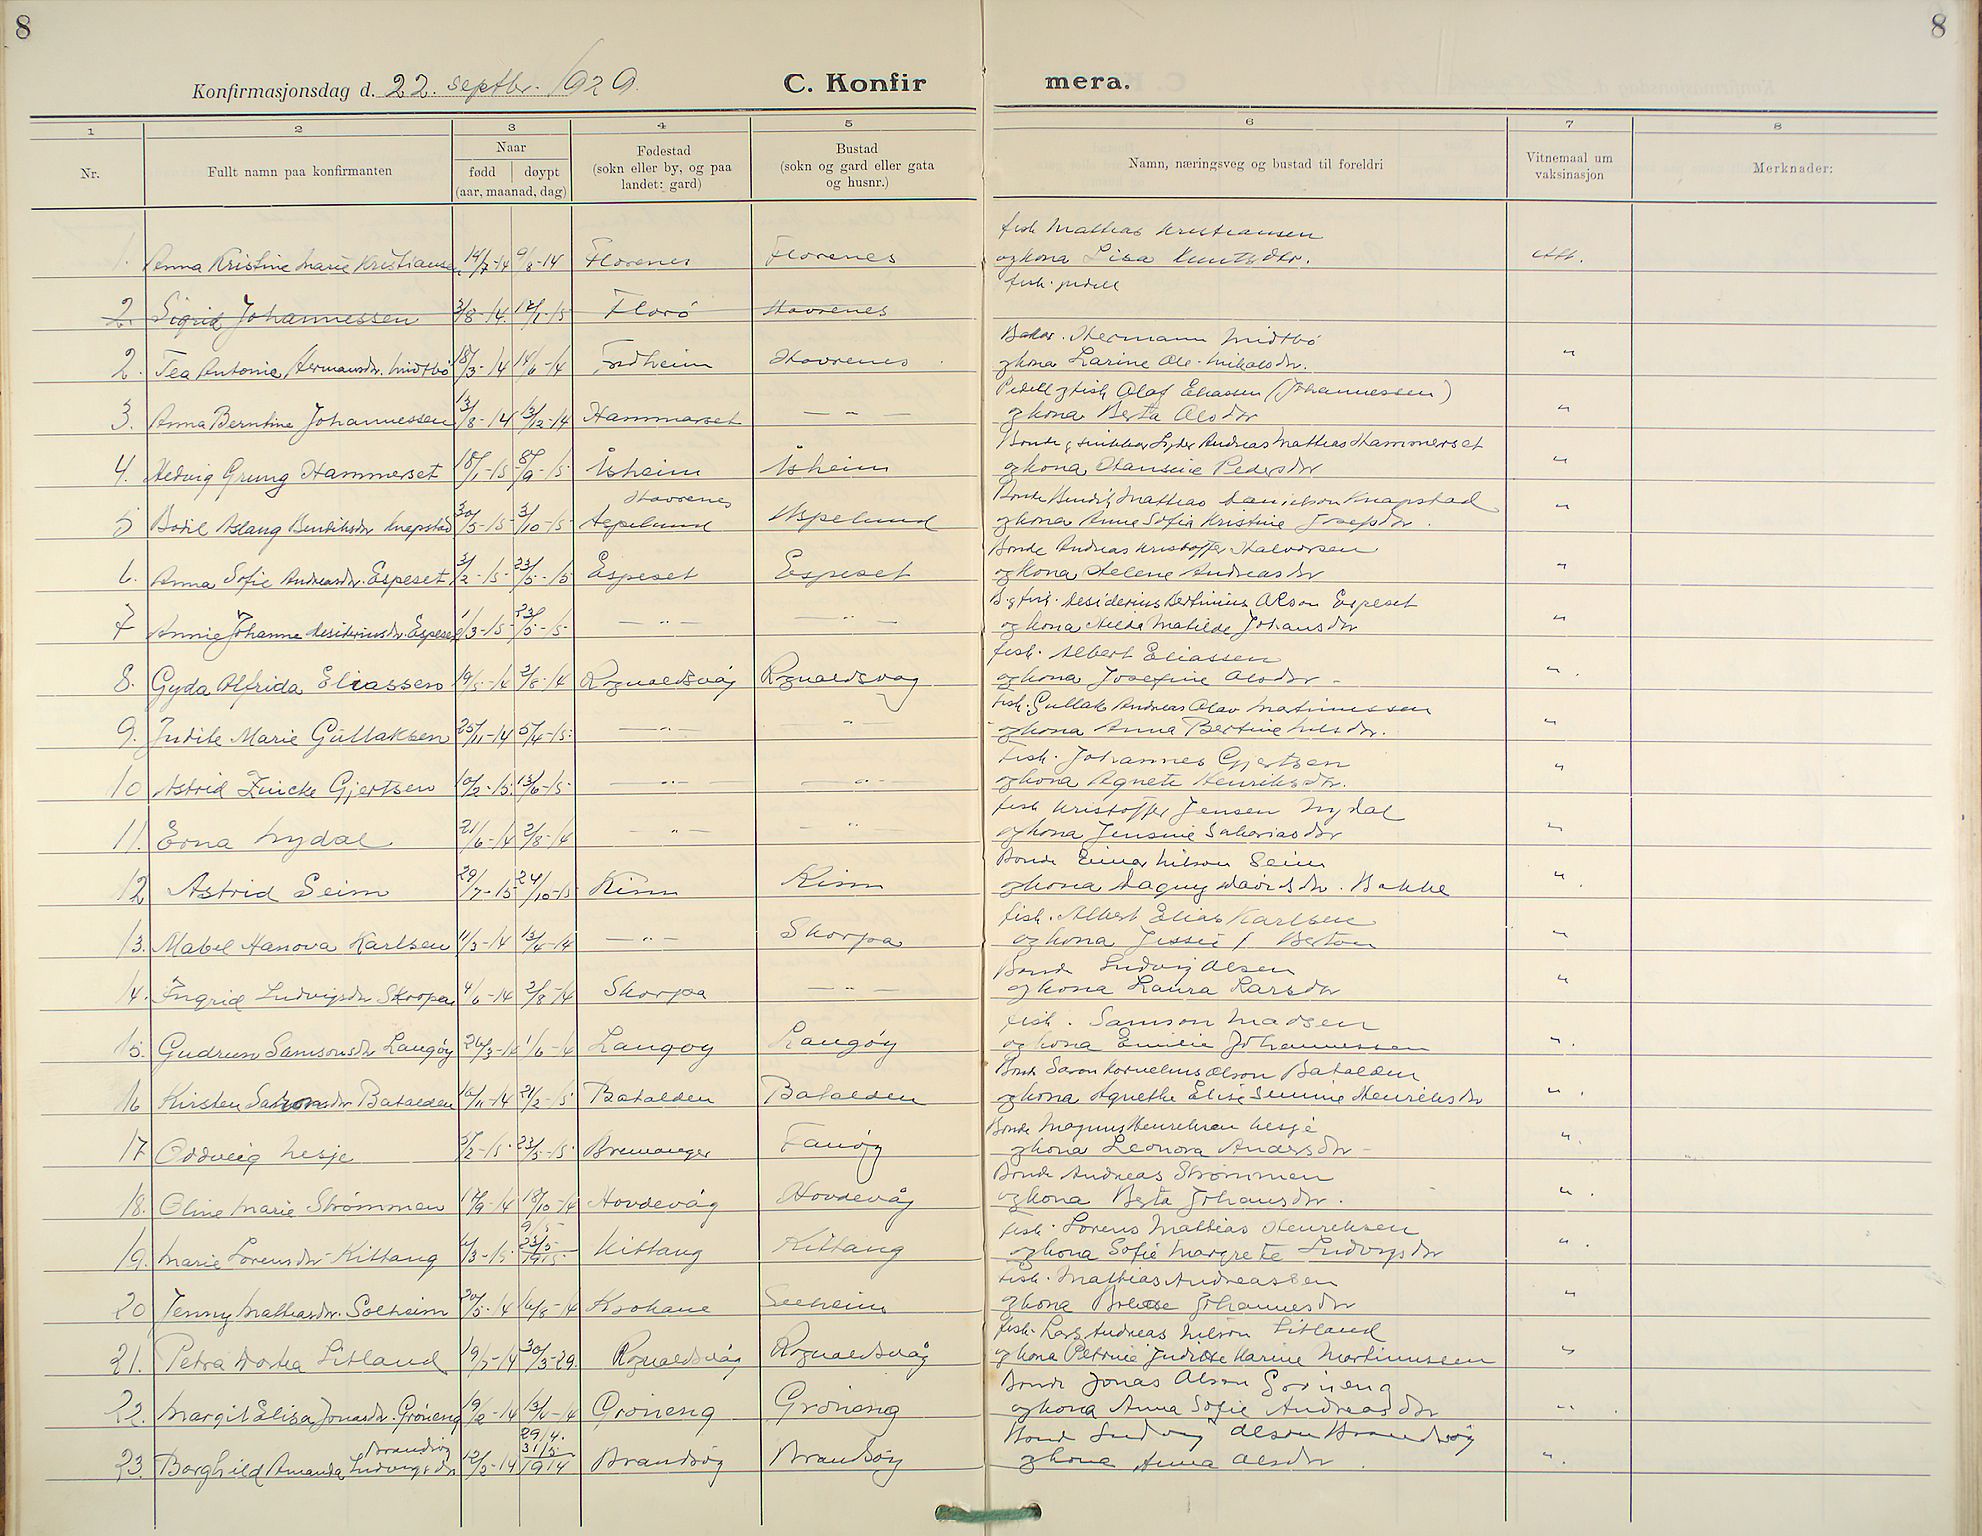 8
8
Konfirmasjonsdag d. 22. septbr. 1929.
C. Konfir
mera.
1 2 3 4 5 6 7 8
Nr.
Fullt namn paa konfirmanten
Naar
fødd døypt
(aar, maanad, dag)
Fødestad
(sokn eller by, og paa
landet: gard)
Bustad
(sokn og gard eller gata
og husnr.)
Namn, næringsveg og bustad til foreldri
Vitnemaal um
vaksinasjon
Merknader:
fisk Mathias Kristiansen
1. Anna Kristine Marie Kristiansen 14/7-14 9/8-14 Florenes Florenes og kona Lisa Knutsdtr. att.
fisk. pedell
2. Sigrid Johannessen 3/8-14. 17/1-15 Florø Havrenes
Baker. Hermann Midtbø
2. Tea Antonie Hermansdtr. Midtbø 18/3-14 14/6-14 Fordheim Havrenes og kona Larine Ole-Mikalsdtr. "
Pedell og fisk Olaf Eliassen (Johannessen)
3. Anna Berntine Johannessen 13/8-14 13/12-14 Hammerset — " — og kona Berta Olsdtr "
Bonde og snikker Syver Andreas Mathias Hammerset
4. Hedvig Grung Hammerset 18/1-15 8/9-15 Åsheim Åsheim og kona Hansine Pedersdtr "
Havrenes
Bonde Bendik Mathias Danielson Knapstad
5 Bodil Aslaug Bendiksdtr Knapstad 30/5-15 3/10-15 Aspelund Aspelund og kona Anne Sofie Kristine Josefsdtr. "
Bonde Andreas Kristoffer Halvorsen
6. Anna Sofie Andreasdtr. Espeset 3/2-15 23/5-15 Espeset Espeset og kona Helene Andreasdtr "
B. og fisk. Desiderius Bertinius Olson Espeset
7 Annie Johanne Desideriusdtr. Espeset 1/3-15 23/5-15 — " — — " — og kona Hilda Matilde Johansdtr "
fisk. Albert Eliassen
8. Gyda Alfrida Eliassen 14/5-14 2/8-14 Rognaldsvåg Rognaldsvåg og kona Josefine Olsdtr - "
fisk. Gullak Andreas Olav Martinussen
9. Judith Marie Gullaksen 25/11-14 5/4-15. — " — — " — og kona Anna Bertine Nilsdtr. "
Fisk. Johannes Gjertsen
10 Astrid Zincke Gjertsen 10/2-15. 13/6-15 — " — — " — og kona Agnete Henriksdtr. "
fisk Kristoffer Jensen Nydal
11. Erna Nydal 21/6-14 2/8-14 — " — — " — og kona Jensine Sakariasdtr "
Bonde Einar Nilson Seim
12 Astrid Seim 29/7-15 24/10-15 Kinn Kinn og kona Dagny Davidsdtr. Bakke "
fisk. Albert Elias Karlsen
13. Mabel Hanova Karlsen 11/3-14 13/4-14 — " — Skorpa og kona Jessie f. Berton "
Bonde Ludvig Olsen
14. Ingrid Ludvigsdtr Skorpa 4/6-14 2/8-14 Skorpa — " — og kona Laura Larsdtr "
fisk. Samson Madsen
15. Gudrun Samsonsdtr Langøy 26/3-14 1/6-14 Langøy Langøy og kona Emilie Johannessen "
Bonde Saron Kornelius Olson Batalden
16 Kirsten Saronsdtr Batalden 16/11-14 21/2-15 Batalden Batalden og kona Agnethe Elise Simmine Henriksdtr "
Bonde Magnus Henriksen Nesje
17 Oddveig Nesje 5/2-15. 23/5-15. Bremanger Fanøy og kona Leonora Andersdtr - "
Bonde Andreas Strømmen
18. Oline Marie Strømmen 17/9-14 18/10-14 Hovdevåg Hovdevåg og kona Berta Johansdtr. "
9/5
fisk. Lorens Mathias Henriksen
19. Marie Lorensdtr Kittang 6/3-15. 23/5 1915 Kittang Kittang og kona Sofie Margrete Ludvigsdtr "
fisk. Mathias Andreassen
20 Jenny Mathiasdtr. Solheim 20/5-14 16/8-14 Krokane Solheim og kona Johannesdtr "
fisk. Lars Andreas Nilson Litland
21. Petra Dortea Litland 19/7-14 30/3-29. Rognaldsvåg Rognaldsvåg og kona Petrine Judithe Karine Martinussen "
Bonde Jonas Olson Grøneng
22. Margit Elisa Jonasdtr. Grøneng 19/2-14 13/4-14 Grøneng Grøneng og kona Anna Sofie Andreasdtr "
29/4.
Brandsøy
Bonde Ludvig Olson Brandsøy
23. Borghild Amanda Ludvigsdtr 12/3-14 31/5 1914 Brandsøy Brandsøy og kona Anna Olsdtr. "